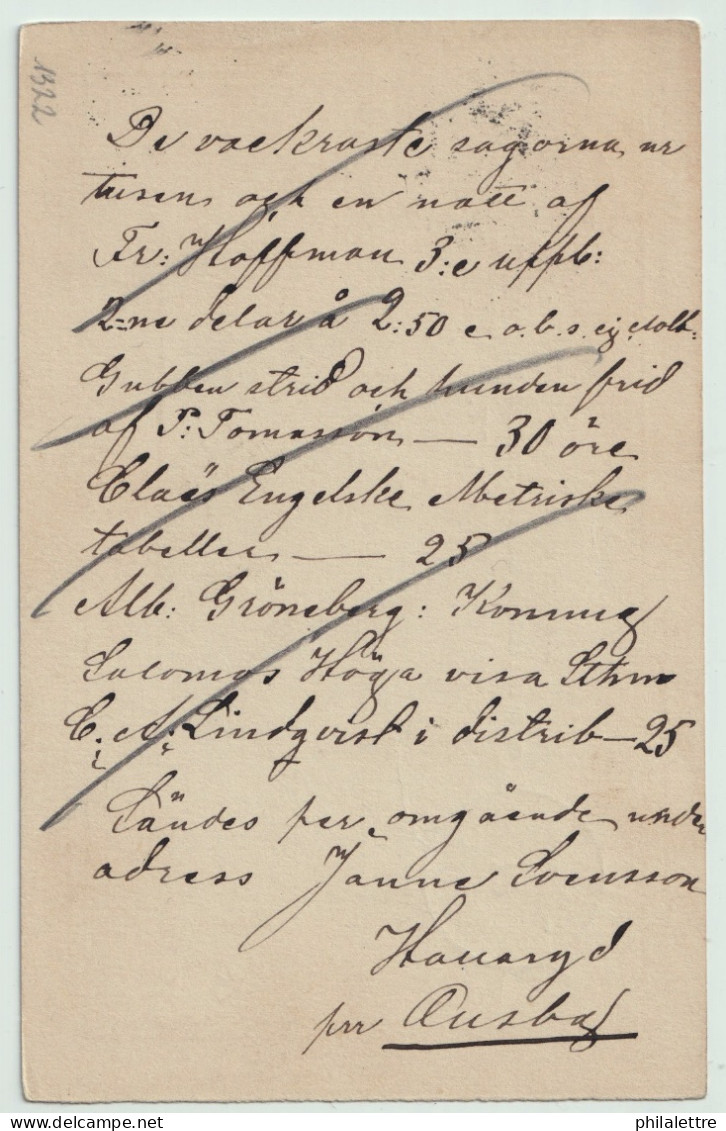 1322
De vackraste sagorna ur
tusen och en natt af
Fr: Hoffman 3:e uppl:
2-ne delar å 2:50 e. o. b. s. ej
Gubben strid och hunden frid
af P: Tomasson — 30 öre
Claës Engelske Metriske
tabeller — 25
Alb: Gröneberg: Konung
Salomos Höga visa Sthm
C. A. Lindqvist i distrib — 25
Sändes per omgående under
adress Janne Svensson
Hauaryd
per Ousby
philalettre